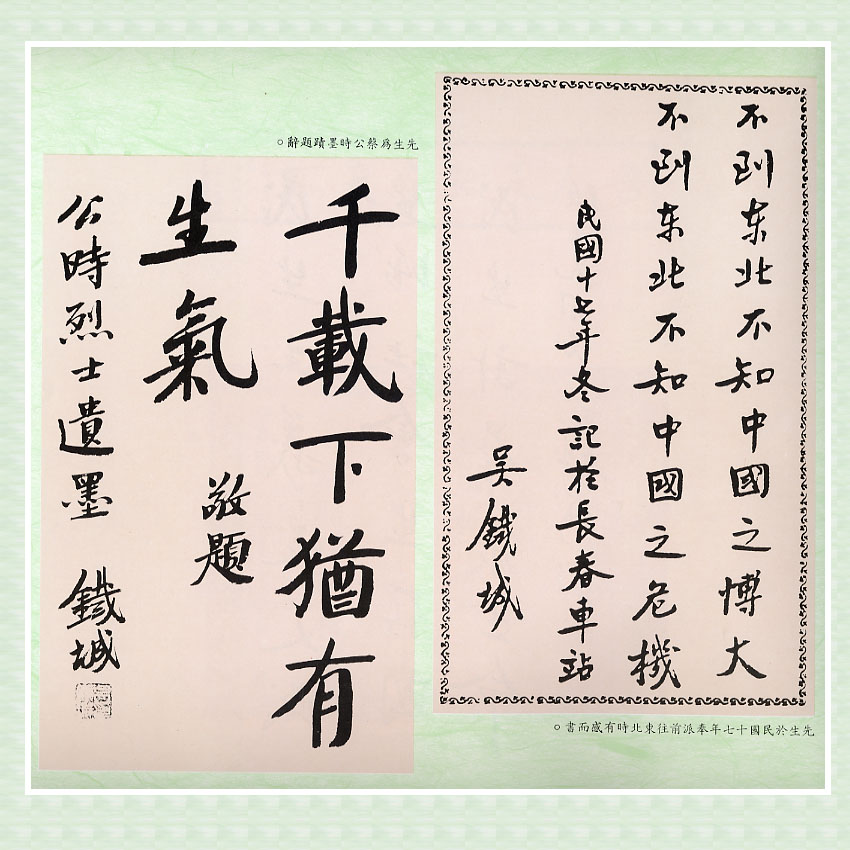 不到东北不知中國之博大
不到东北不知中國之危機
民國十七年冬記於長春車站
吳鐵城
先生於民國十七年奉派前往東北時有感而書。
先生為蔡公時墨蹟題辭。
千載下猶有
生氣
敬題
公時烈士遺墨 鐵城